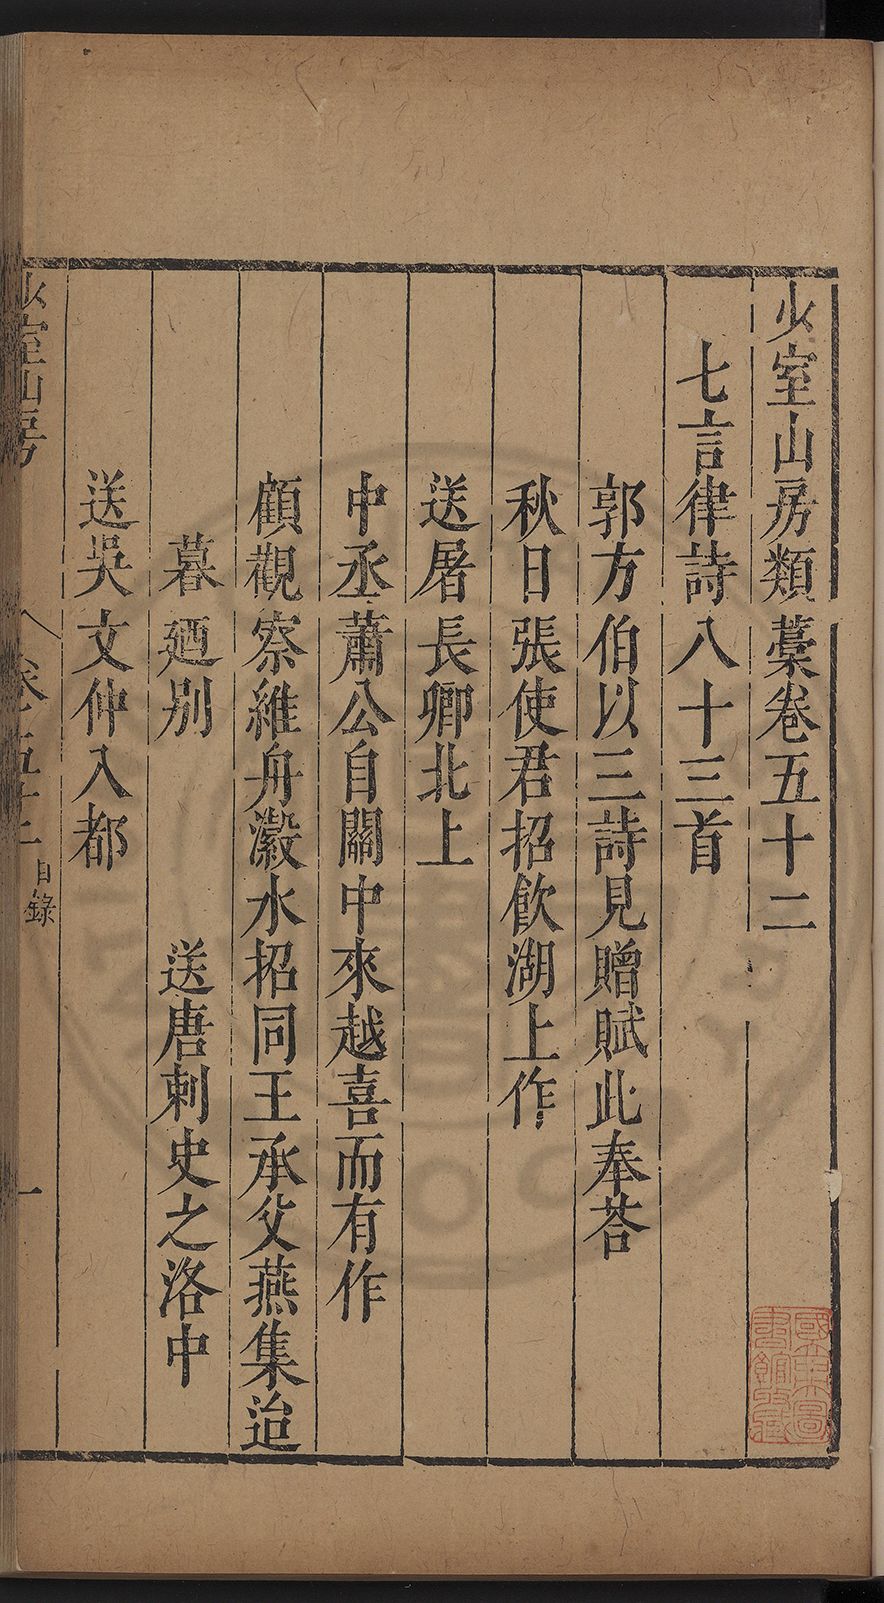 少室山房類藁卷五十二
七言律詩八十三首
郭方伯以三詩見贈賦此奉荅
秋日張使君招飲湖上作
送屠長卿北上
中丞蕭公自關中來越喜而有作
顧觀察維舟瀫水招同王承父燕集迨
暮廼別　送唐刺史之洛中
送吳文仲入都
少室山房　卷五十二　目錄　一
國立中央圖書館收藏